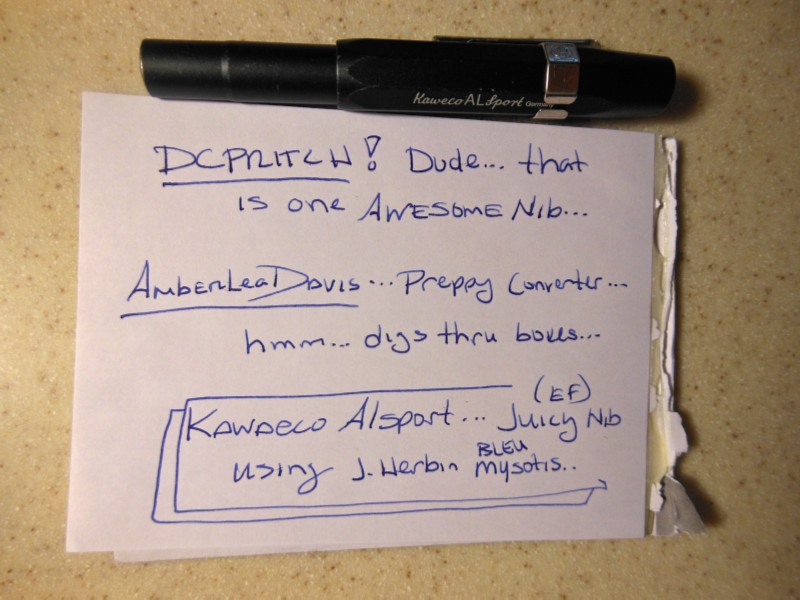 Kaweco AL Sport Germany
DCPRITCH! Dude... that
is one AWESOME Nib...
AmberLeaDavis... Preppy Converter...
hmm... digs thru boxes...
(EF)
Kawaeco Alsport... Juicy Nib
BLEU
using J. Herbin mysotis..